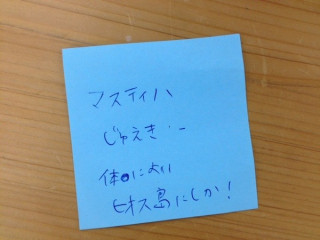 マスティハ
じゅえき・ー
体●によい
ヒオス島にしか!